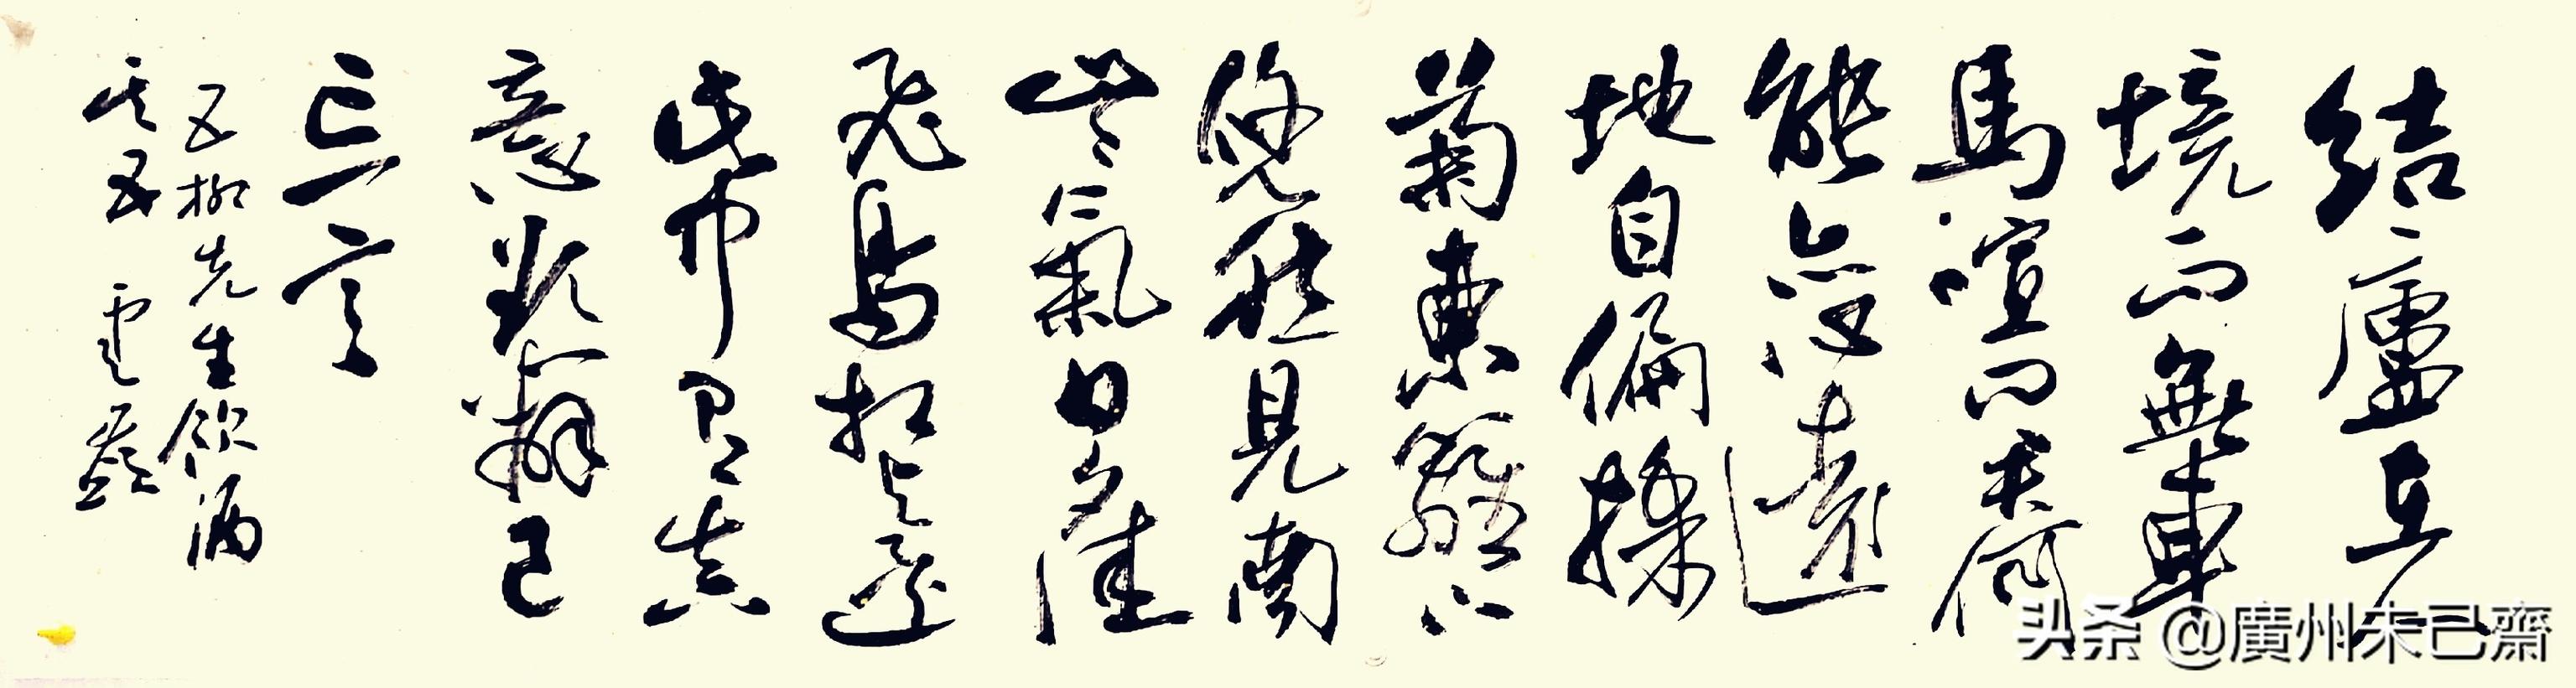 結廬在人
境而無車
馬喧問君何
能尔心遠
地自偏採
菊東籬下
悠然見南
山〻氣日夕佳
飛鳥相與還
此中有真
意欲辯已
忘言
五柳先生飲酒
其五
头条 @廣州未已齋